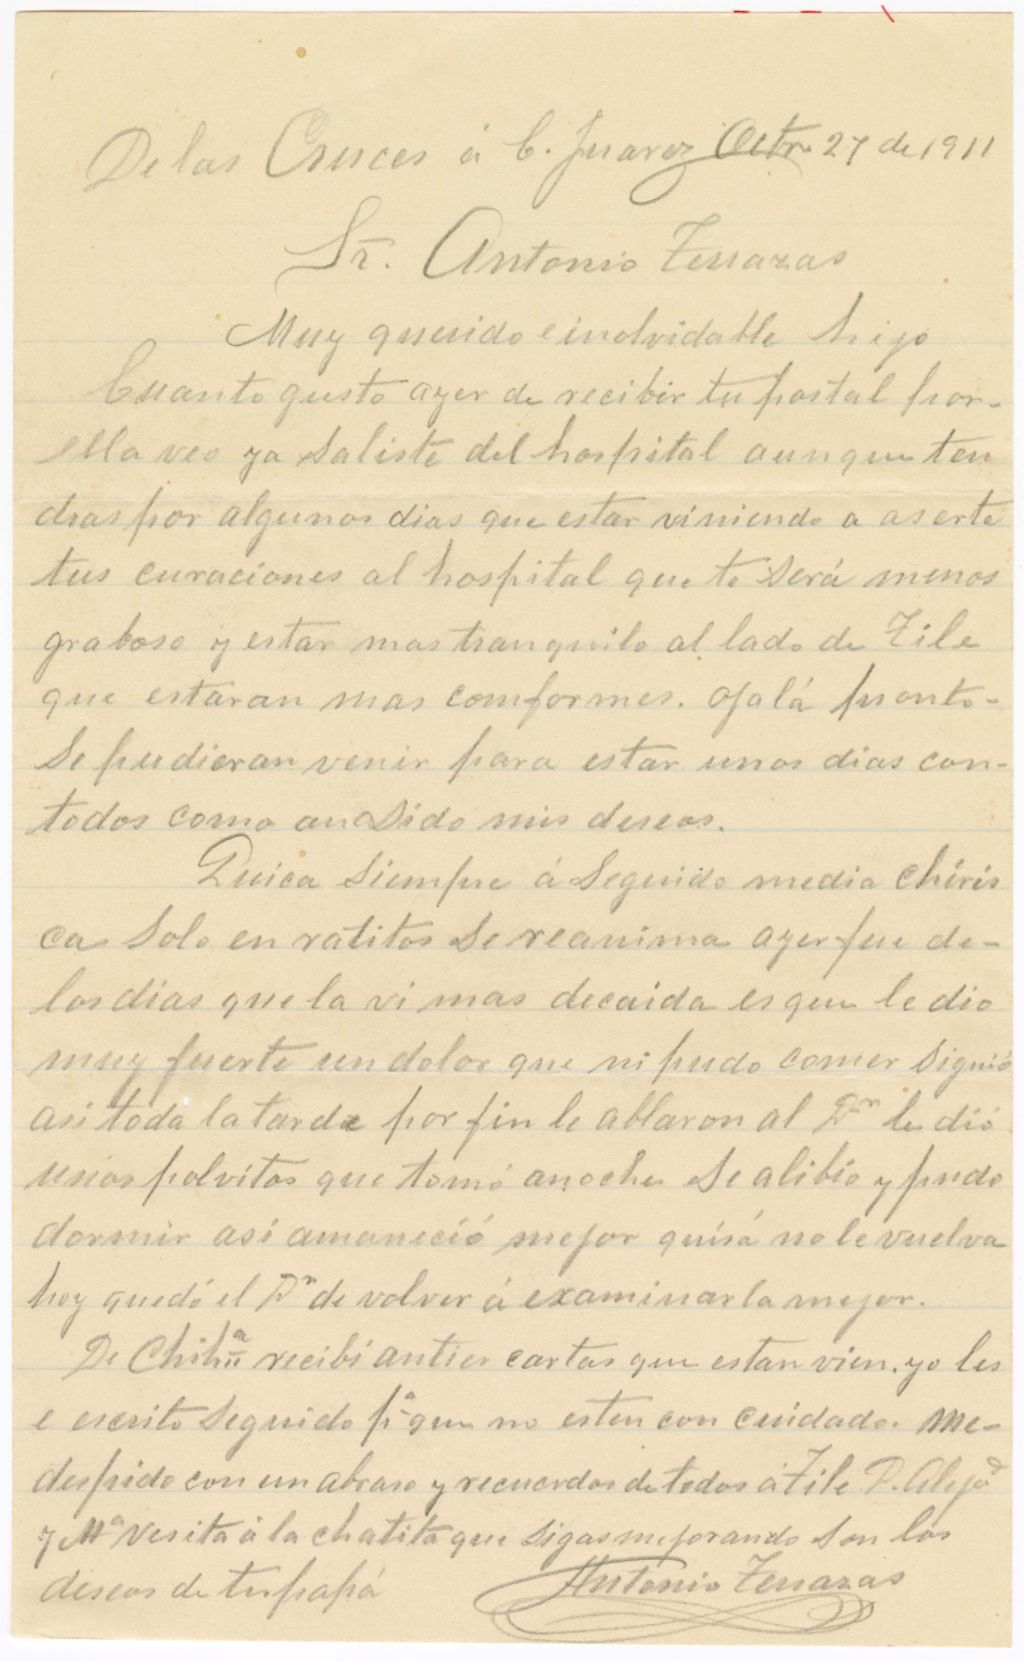 De las Cruces á C. Juarez Octre 27 de 1911
Sr. Antonio Terrazas
Muy querido e inolvidable hijo
Cuanto gusto ayer de recibir tu postal por-
ella veo ya saliste del hospital aunque ten
dras por algunos dias que estar viniendo a aserte
tus curaciones al hospital que te será menos
graboso y estar mas tranquilo al lado de Tile
que estaran mas comformes. ojalá pronto-
se pudieran venir para estar unos dias con-
todos como an sido mis deseos.
Quica siempre á seguido media chiris
ca solo en ratitos se reanima ayer fue de-
los dias que la vi mas decaida es que le dio
muy fuerte un dolor que ni pudo comer siguió
asi toda la tarde por fin le ablaron al Dr. le dió
unos polvitos que tomó anoche se alibio y pudo
dormir asi amaneció mejor quisá no le vuelva
hoy quedó el Dr de volver á examinarla mejor.
De Chiha recibi antier cartas que estan vien. yo les
e escrito seguido pa que no esten con cuidado. Me-
despido con un abraso y recuerdos de todos á Tile P. Alejo
y Ma vesita á la chatita que sigas mejorando son los
deseos de tu papá Antonio Terrazas